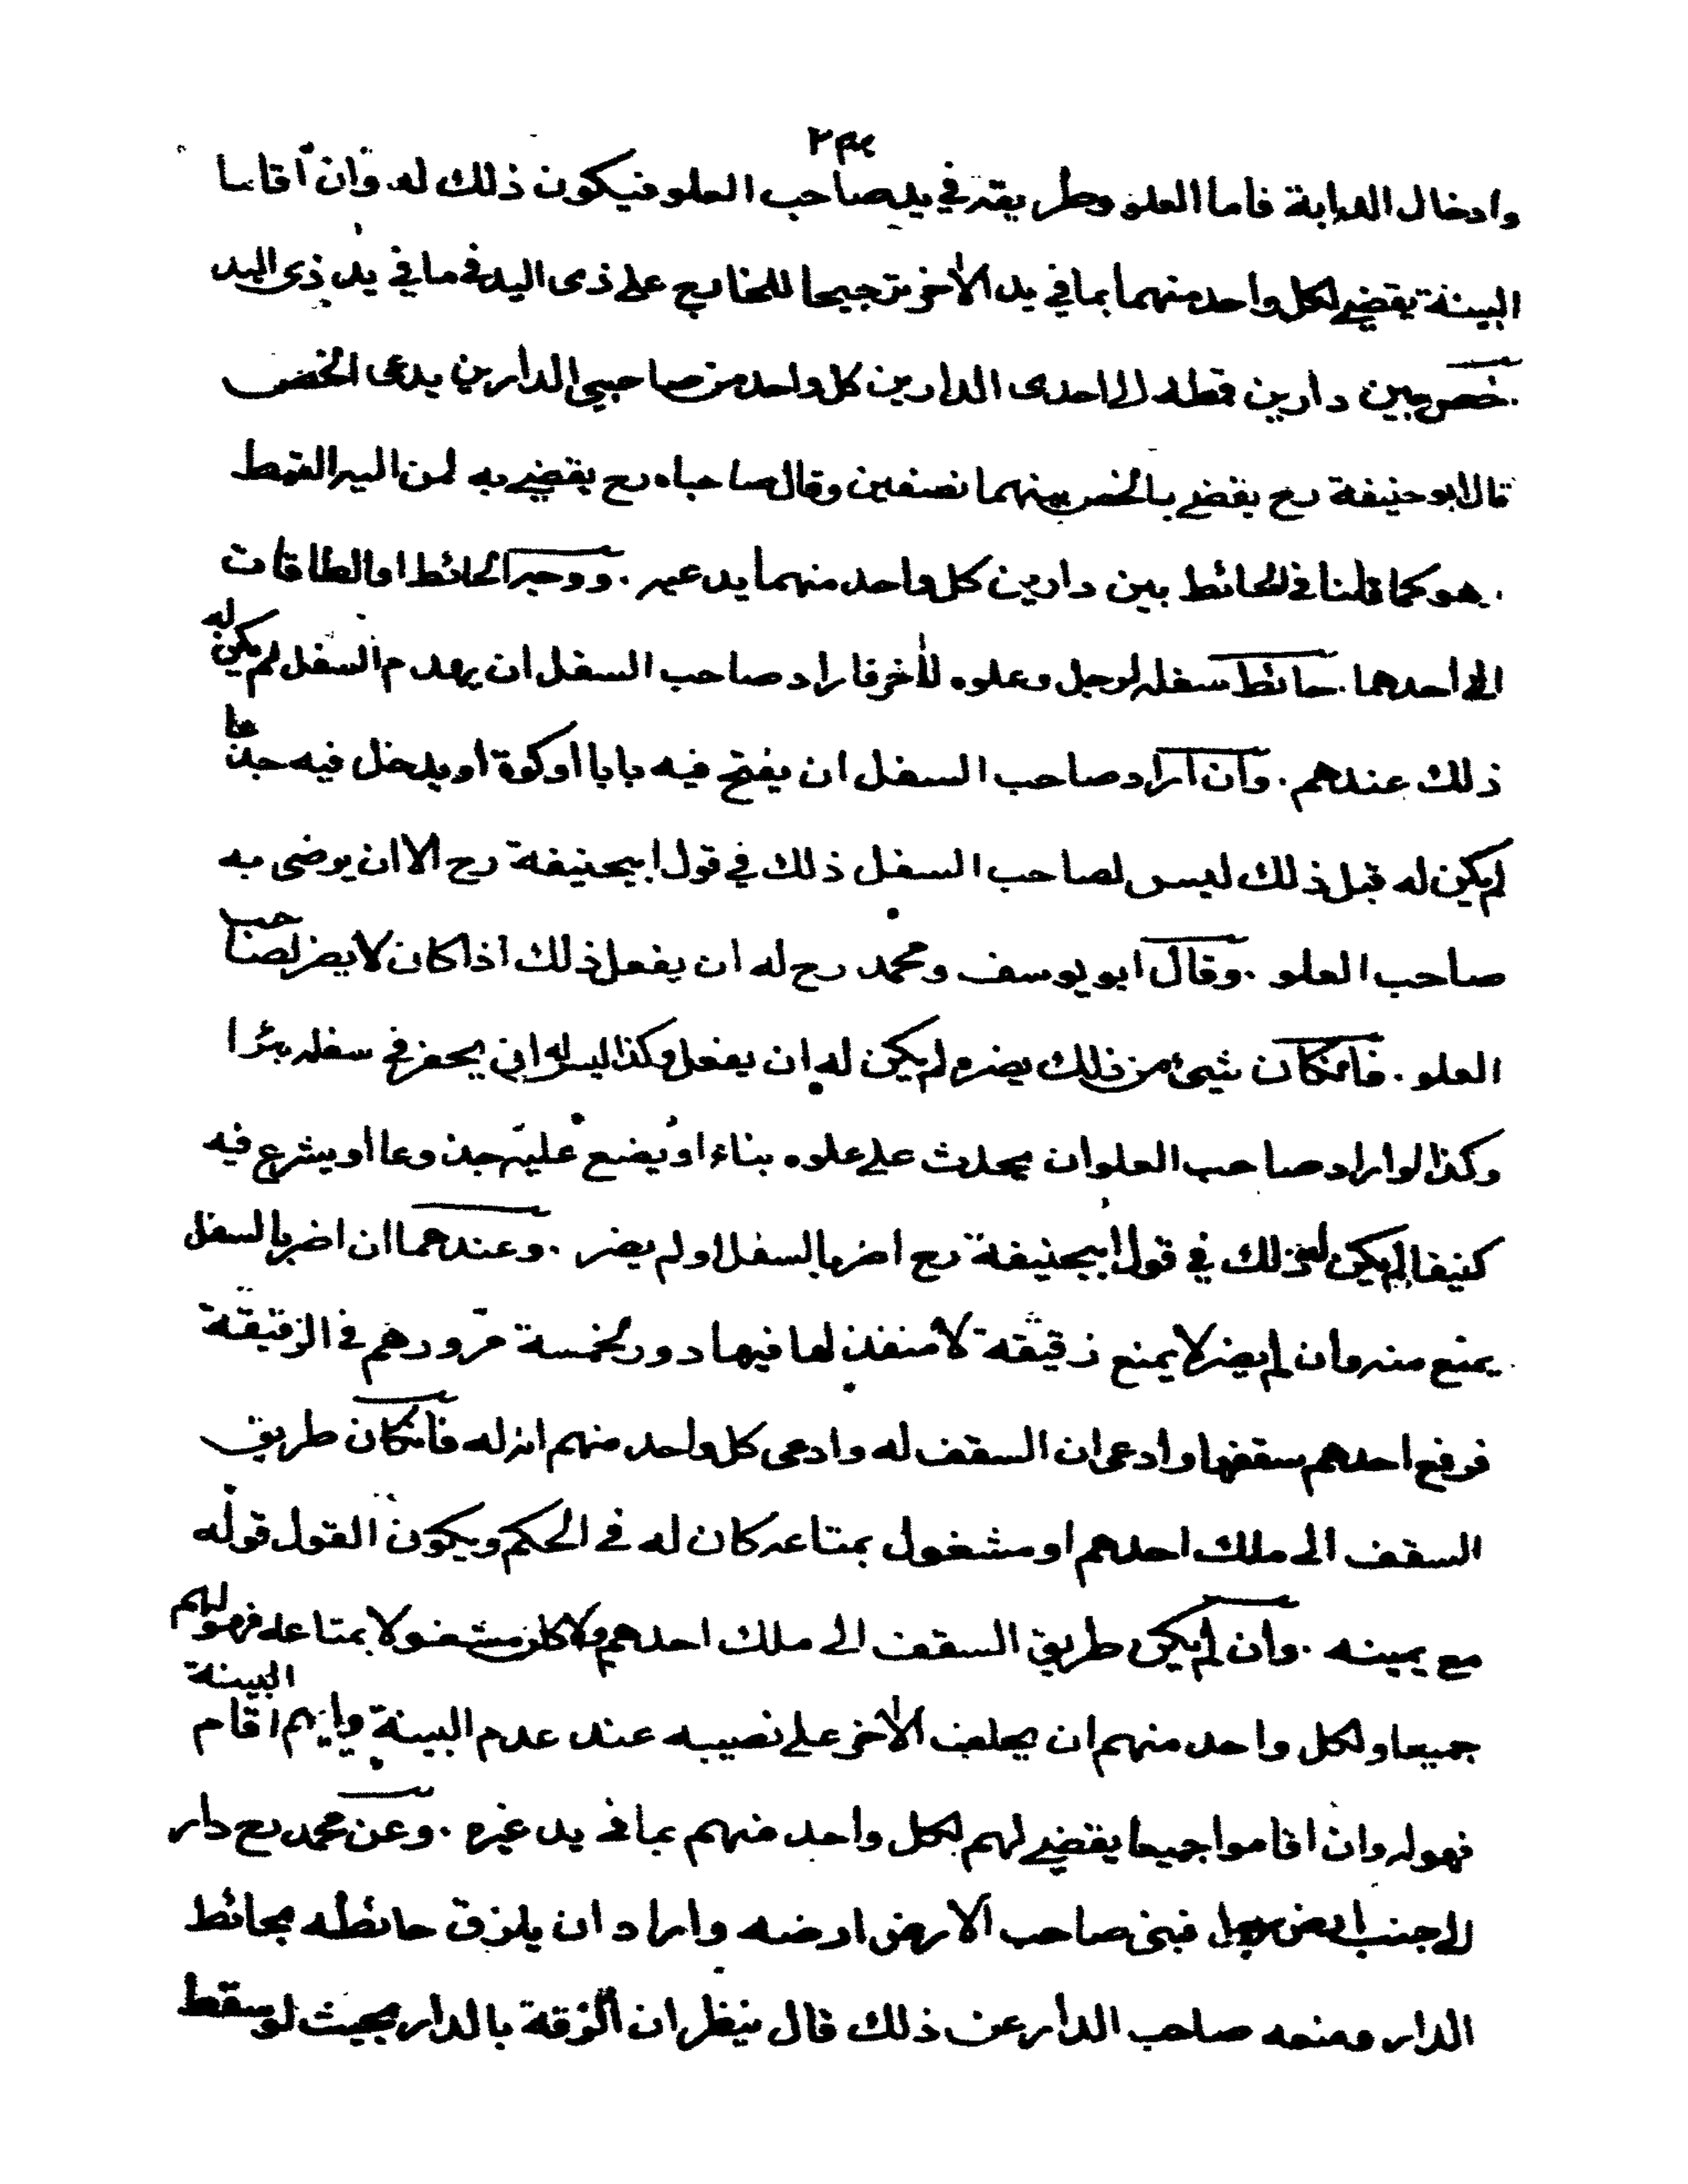 وادخال الدابة فاما العلو وطريقه في يد صاحب العلو فيكون ذلك له وان اقاما
البينة يقضي لكل واحد منهما بما في يد الآخر ترجيحا للخارج على ذى اليد فيما في يد ذى اليد
خص بين دارين قمطه الى احدى الدارين كل واحد من صاحبي الدارين يدعى الخص
قال ابو حنيفة رح يقضي بالخص بينهما نصفين وقال صاحباه رح يقضي به لمن اليه القمط
هو كما قلنا في الحائط بين دارين كل واحد منهما يدعيه . ووجه الحائط او الطاقات
الى احدهما . حائط سفله لرجل وعلوه للآخر فاراد صاحب السفل ان يهدم السفل لم يكن له
ذلك عندهم . وان اراد صاحب السفل ان يفتح فيه بابا او كوة او يدخل فيه جذعا
لم يكن له قبل ذلك ليس لصاحب السفل ذلك في قول ابيحنيفة رح الا ان يرضى به
صاحب العلو . وقال ابو يوسف ومحمد رح له ان يفعل ذلك اذا كان لا يضر لصاحب
العلو . فانكان شيئ من ذلك يضره لم يكن له ان يفعل وكذا ليس له ان يحفر في سفله بئرا
وكذا لو اراد صاحب العلو ان يحدث على علوه بناء او يضع عليه جذوعا او يشرع فيه
كنيفا لم يكن له ذلك في قول ابيحنيفة رح اضر بالسفل او لم يضر . وعندهما ان اضر بالسفل
يمنع منه وان لم يضر لا يمنع زقيقة لا منفذ لها فيها دور لخمسة مرورهم في الزقيقة
فرفع احدهم سقفها وادعى ان السقف له وادعى كل واحد منهم انه له فانكان طريق
السقف الى ملك احدهم او مشغول بمتاعه كان له في الحكم ويكون القول قوله
مع يمينه . وان لم يكن طريق السقف الى ملك احدهم ولا كان مشغولا بمتاعه فهو لهم
جميعا ولكل واحد منهم ان يحلف الآخر على نصيبه عند عدم البينة وايهم اقام البينة
فهو له وان اقاموا جميعا يقضي لهم لكل واحد منهم بما في يد غيره . وعن محمد رح دار
الى جنب ارض رجل فبنى صاحب الارض ارضه واراد ان يلزق حائطه بحائط
الدار ومنعه صاحب الدار عن ذلك قال ينظر ان الزقه بالدار بحيث لو سقط